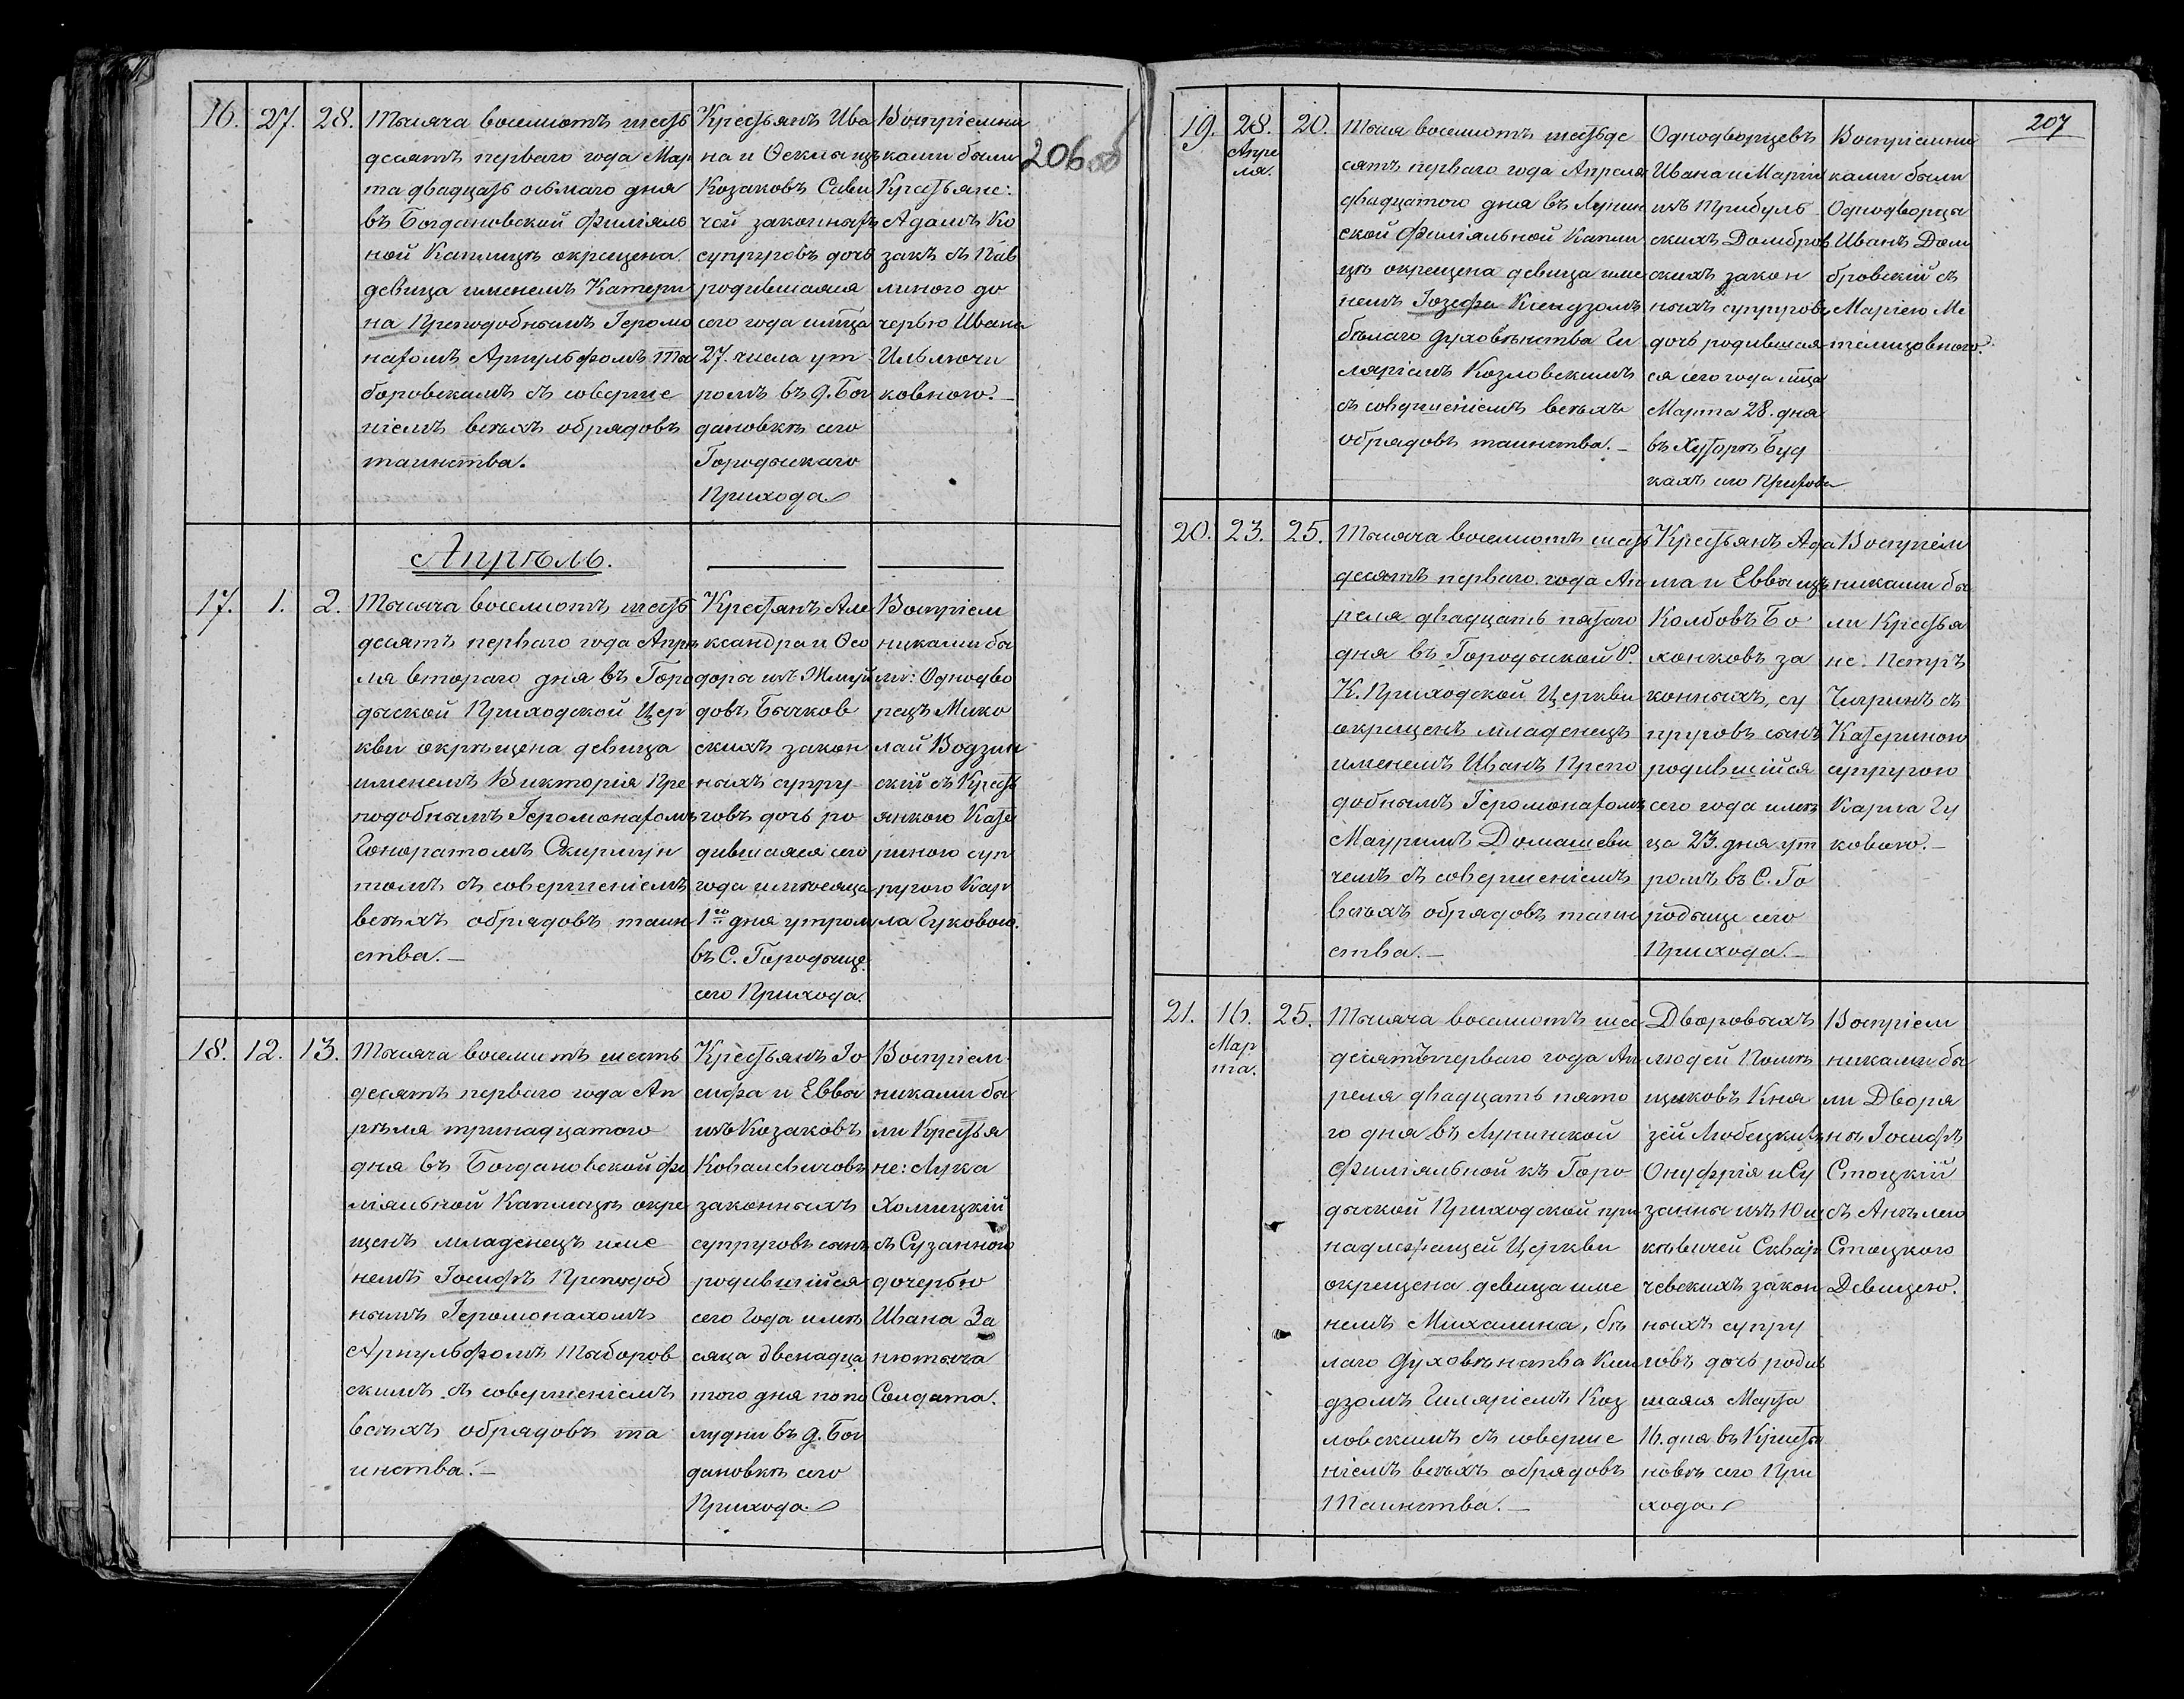 206 об
16. 27. 28.
Тысяча восемьсотъ шесть
десятъ перваго года Мар
та двадцать осьмаго дня
въ Богдановской Филіяль
ной Каплицѣ окрещена
девица именемъ Катери
на Преподобнымъ Іеромо
нахомъ Арнульфомъ Ты
боровскимъ съ соверше
ніемъ всѣхъ обрядовъ
таинства.
Крестьянъ Ива
на и Феклы изъ
Козаковъ Сави
чей законныхъ
супруговъ дочь
родившаяся
сего года м͠ца
27. числа ут
ромъ въ д. Бог
дановкѣ сего
Городыскаго
Прихода.
Воспріемни
ками были
Крестьяне:
Адамъ Ко
закъ съ Пав
линою до
черью Ивана
ковною.
Апрѣль.
17. 1. 2.
Тысяча восемьсотъ шесть
десятъ перваго года Апрѣ
ля втораго дня въ Горо
дыской Приходской Цер
кви окрѣщена девица
именемъ Викторія Пре
подобнымъ Іеромонахомъ
Гоноратомъ Скирмун
томъ съ совершеніемъ
всѣхъ обрядовъ таин
ства. —
Крестьянъ Але
ксандра и Фео
доры изъ
довъ Бычков
скихъ закон
ныхъ супру
говъ дочь ро
дившаяся сего
года и мѣсяца
1го дня утромъ
въ С. Городище
сего Прихода.
Воспріем
никами бы
ли: Однодво
рецъ Мико
лай Водзин
скій съ Кресть
янкою Кате
риною суп
ругою Кар
ла Гуковою.
18. 12. 13.
Тысяча восемьсотъ шесть
десятъ перваго года Ап
рѣля тринадцатого
дня въ Богдановской Фи
ліяльной Каплицѣ окре
щенъ младенецъ име
немъ Іосифъ Преподоб
нымъ Іеромонахомъ
Арнульфомъ Тыборов
скимъ съ совершеніемъ
всѣхъ обрядовъ та
инства. —
Крестьянъ Іо
сифа и Еввы
изъ Козаковъ
Ковалевичовъ
законныхъ
супруговъ сынъ
родившійся
сего года и мѣ
сяца двенадца
того дня по по
лудни въ д. Бог
дановкѣ сего
Прихода.
Воспріем
никами бы
ли Крестья
не: Лука
Холицкій
съ Сузанною
дочерью
Ивана За
нютыча
Солдата.
207
19. 28. Апре
ля. 20.
Тысяя восемьсотъ шестьде
сятъ перваго года Апреля
двадцатого дня въ Лунин
ской Филіяльной Капли
цѣ окрещена девица име
немъ Іозефа Ксендзомъ
бѣлаго духовѣнства Ги
ляріемъ Козловскимъ
съ совершеніемъ всѣхъ
обрядовъ таинства. —
Однодворцевъ
Ивана и Маріи
изъ Прибуль
скихъ Домбров
скихъ закон
ныхъ супруговъ
дочь родившая
ся сего года м͠ца
Марта 28. дня
въ Хуторѣ Буд
кахъ сего Прихода
Воспріемни
ками были
Однодворцы
Иванъ Дом
бровскій съ
Маріею Ме
телицовною.
20. 23. 25.
Тысяча восемьсотъ шесть
десятъ перваго года Ап
реля двадцать пятаго
дня въ Городыской Р.
К. Приходской Церкви
окрещенъ младенецъ
именемъ Иванъ Препо
добнымъ Іеромонахомъ
Мауримъ Домашеви
чемъ съ совершеніемъ
всѣхъ обрядовъ таин
ства. —
Крестьянъ Ада
ма и Еввы изъ
Колбовъ Бо
хонковъ за
конныхъ су
пруговъ сынъ
родившійся
сего года и мѣ
ца 23. дня ут
ромъ въ С. Го
родище сего
Прихода. —
Воспріем
никами бы
ли Крестья
не: Петръ
Чигринъ съ
Катериною
супругою
Карла Гу
ковою. —
21. 16. Мар
та. 25.
Тысяча восемьсотъ шес
десятъ перваго года Ап
реля двадцать пято
го дня въ Лунинской
Филіяльной къ Горо
дыской Приходской при
надлежащей Церкви
окрещена девица име
немъ Михалина, бѣ
лаго духовѣнства Ксен
дзомъ Гиляріемъ Коз
ловскимъ съ соверше
ніемъ всѣхъ обрядовъ
Таинства. —
Дворовыхъ
людей Помѣ
щиковъ Кня
зей Любецкихъ
Онуфрія и Су
занны изъ Юш
кѣвичей Сквар
чевскихъ закон
ныхъ супру
говъ дочь родив
шаяся Марта
16. дня въ
новѣ сего При
хода.
Воспріем
никами бы
ли Дворя
нѣ Іосифъ
Стоцкій
съ Анѣлею
Стоцкою
Девицею.